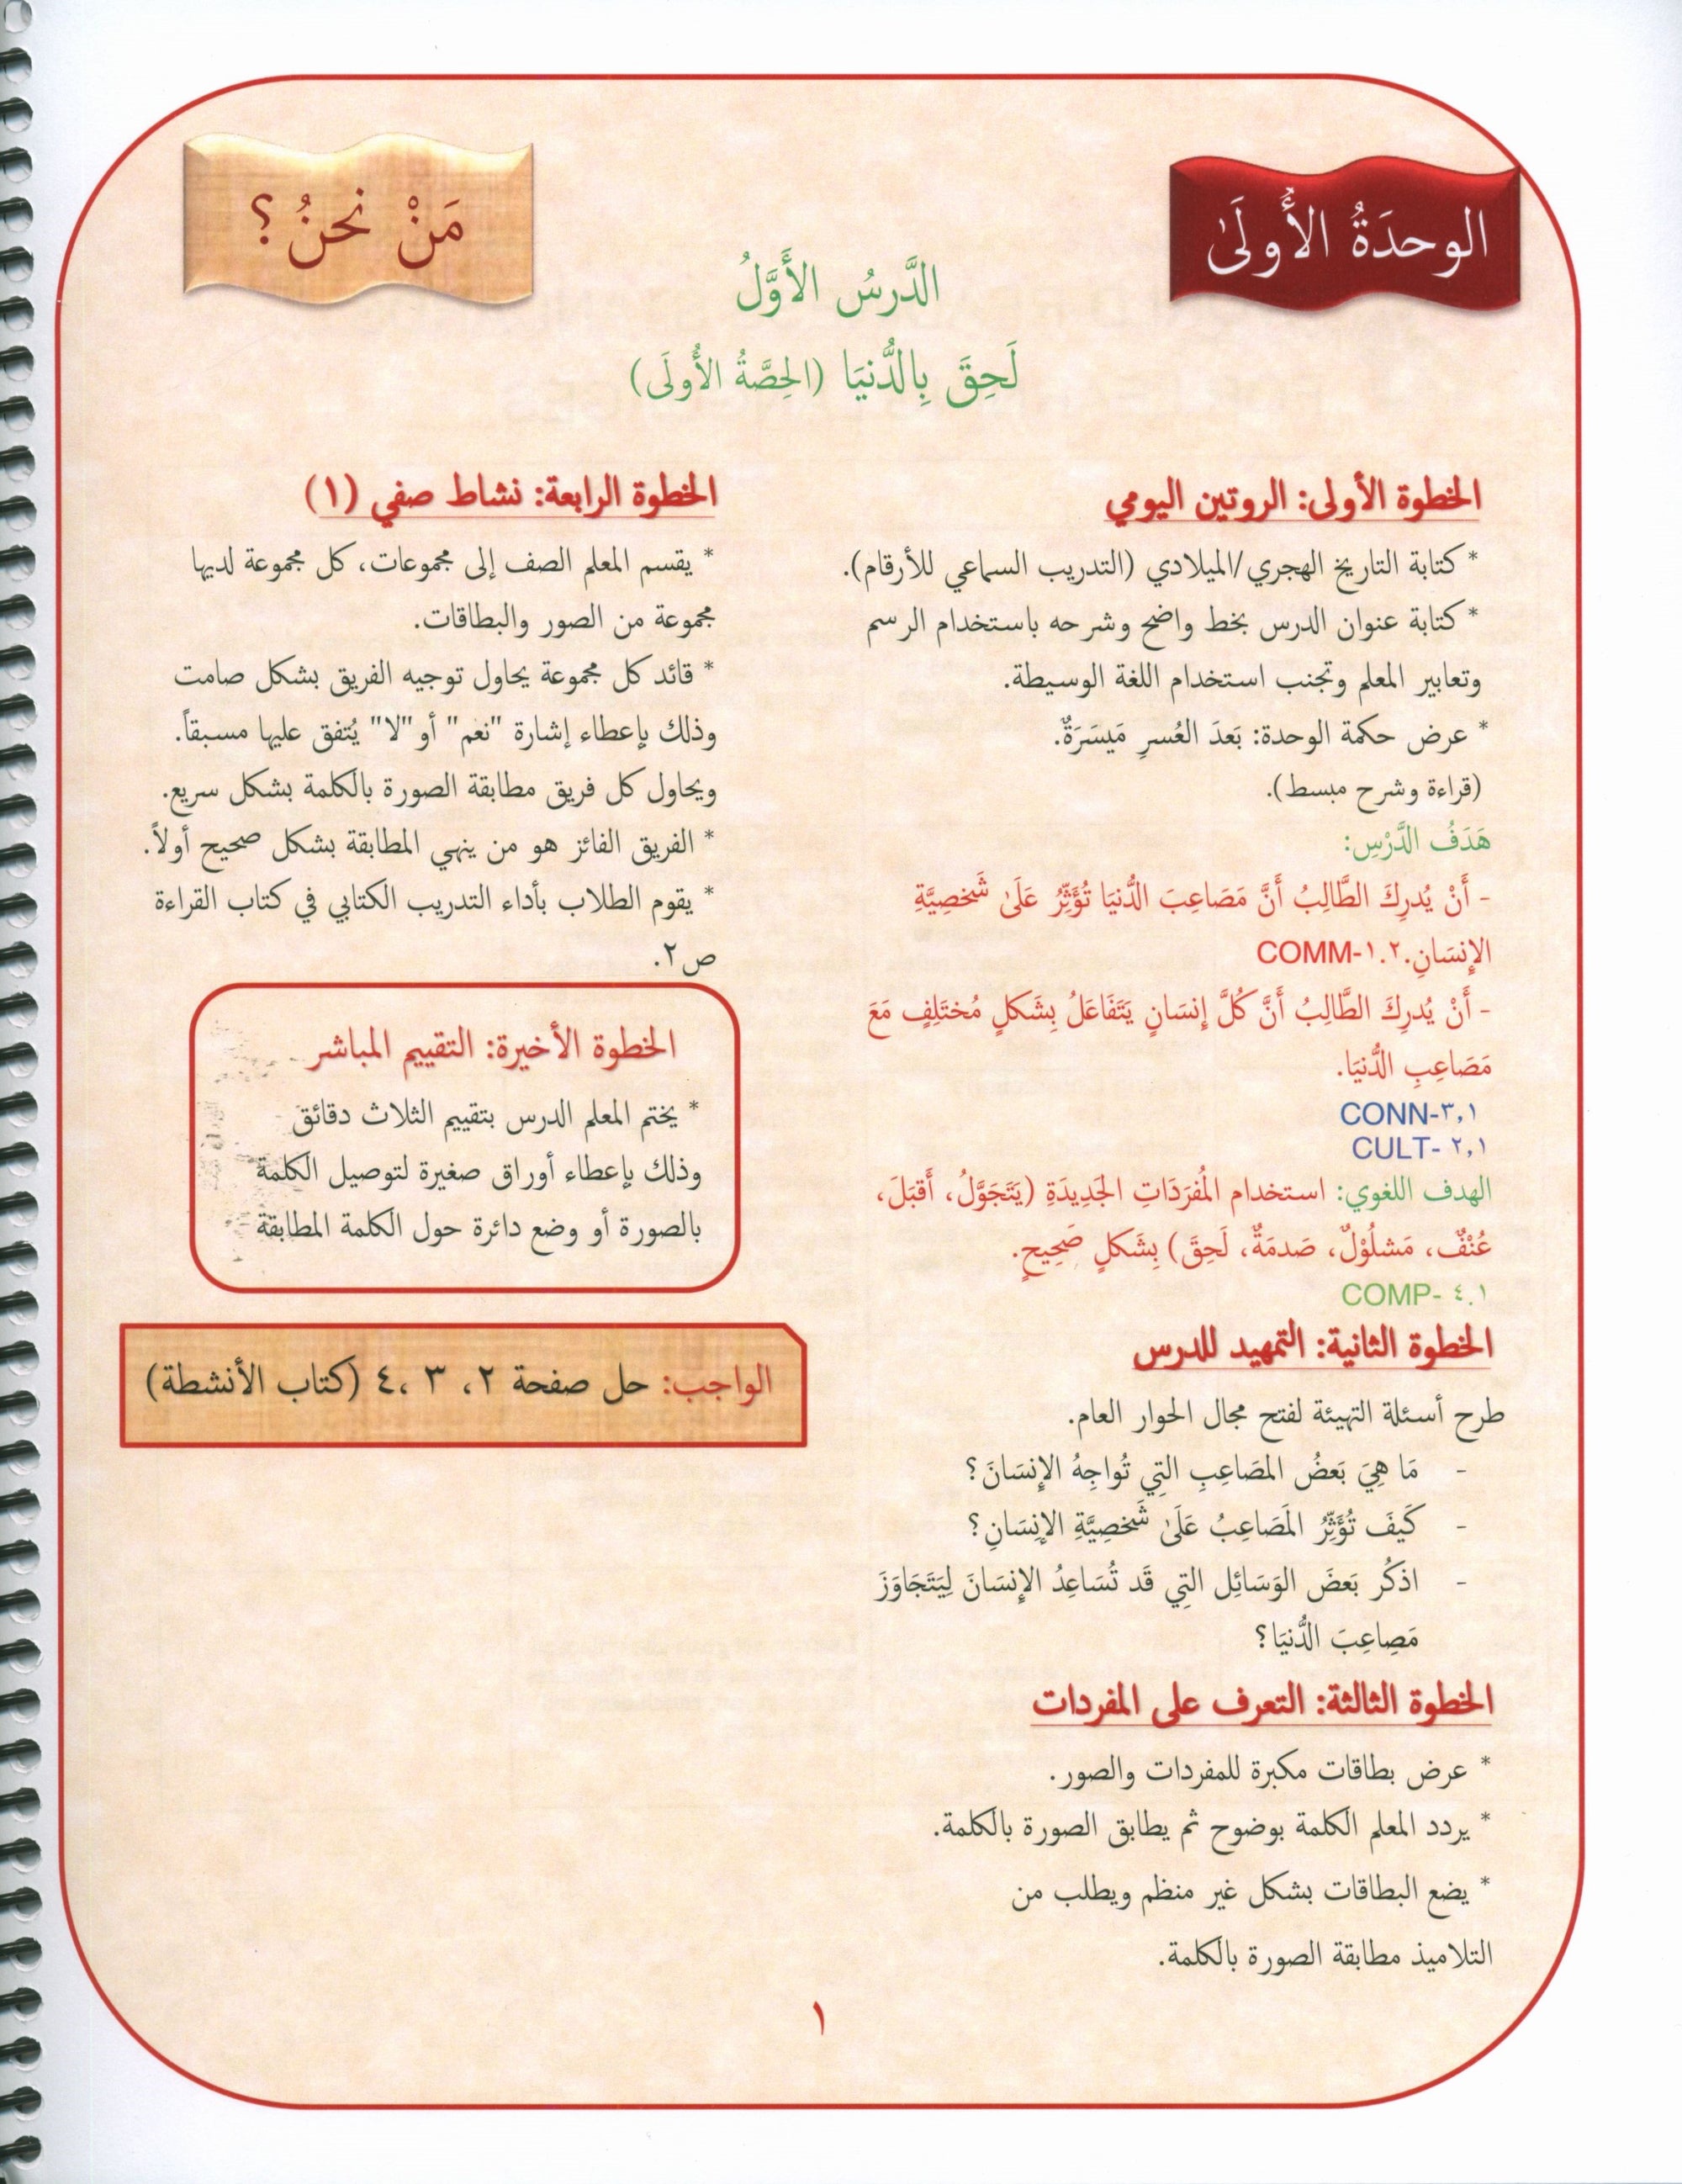 الوحدَةُ الأُولَىٰ
مَنْ نحنُ؟
الدَّرسُ الأَوَّلُ
لَحِقَ بِالدُّنيَا (الحِصَّةُ الأُولَى)
الخطوة الأولى: الروتين اليومي
* كتابة التاريخ الهجري/الميلادي (التدريب السماعي للأرقام).
* كتابة عنوان الدرس بخط واضح وشرحه باستخدام الرسم
وتعابير المعلم وتجنب استخدام اللغة الوسيطة.
* عرض حكمة الوحدة: بَعدَ العُسرِ مَيسَرَةٌ.
(قراءة وشرح مبسط).
هَدَفُ الدَّرْسِ:
- أَنْ يُدرِكَ الطَّالِبُ أَنَّ مَصَاعِبَ الدُّنيَا تُؤَثِّرُ عَلَىٰ شَخصِيَّةِ
الإنسَانِ.COMM-١.٢
- أَنْ يُدرِكَ الطَّالِبُ أَنَّ كُلَّ إِنسَانٍ يَتَفَاعَلُ بِشَكلٍ مُختَلِفٍ مَعَ
مَصَاعِبِ الدُّنيَا.
CONN-٣,١
CULT- ٢,١
الهدف اللغوي: استخدام المُفرَدَاتِ الجَدِيدَةِ (يَتَجَوَّلُ، أَقبَلَ،
عُنْفٌ، مَشلُوْلٌ، صَدمَةٌ، لَحِقَ) بِشَكلٍ صَحِيحٍ.
COMP- ٤.١
الخطوة الثانية: التمهيد للدرس
طرح أسئلة التهيئة لفتح مجال الحوار العام.
- مَا هِيَ بَعضُ المصَاعِبِ التِي تُواجِهُ الإنسَانَ؟
- كَيفَ تُؤَثِّرُ المَصَاعِبُ عَلَىٰ شَخصِيَّةِ الإِنسَانِ؟
- اذكُر بَعضَ الوَسَائِل التِي قَد تُسَاعِدُ الإنسَانَ لِيَتَجَاوَزَ
مَصِاعِبَ الدُّنيَا؟
الخطوة الثالثة: التعرف على المفردات
* عرض بطاقات مكبرة للمفردات والصور.
* يردد المعلم الكلمة بوضوح ثم يطابق الصورة بالكلمة.
* يضع البطاقات بشكل غير منظم ويطلب من
التلاميذ مطابقة الصورة بالكلمة.
الخطوة الرابعة: نشاط صفي (١)
* يقسم المعلم الصف إلى مجموعات، كل مجموعة لديها
مجموعة من الصور والبطاقات.
* قائد كل مجموعة يحاول توجيه الفريق بشكل صامت
وذلك بإعطاء إشارة "نعم" أو "لا" يُتفق عليها مسبقاً.
ويحاول كل فريق مطابقة الصورة بالكلمة بشكل سريع.
* الفريق الفائز هو من ينهي المطابقة بشكل صحيح أولاً.
* يقوم الطلاب بأداء التدريب الكتابي في كتاب القراءة
ص٢.
الخطوة الأخيرة: التقييم المباشر
* يختم المعلم الدرس بتقييم الثلاث دقائق
وذلك بإعطاء أوراق صغيرة لتوصيل الكلمة
بالصورة أو وضع دائرة حول الكلمة المطابقة
الواجب: حل صفحة ٢، ٣ ،٤ (كتاب الأنشطة)
١